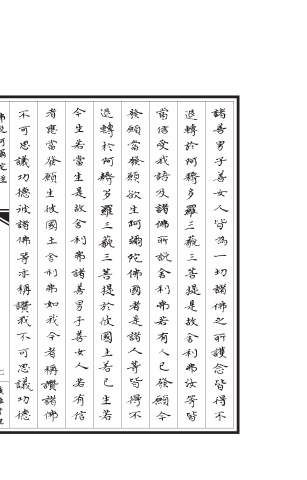 諸善男子善女人皆為一切諸佛之所護念皆得不
退轉於阿耨多羅三藐三菩提是故舍利弗汝等皆
當信受我語及諸佛所說舍利弗若有人已發願今
發願當發願欲生阿彌陀佛國者是諸人等皆得不
退轉於阿耨多羅三藐三菩提於彼國土若已生若
今生若當生是故舍利弗諸善男子善女人若有信
者應當發願生彼國土舍利弗如我今者稱讚諸佛
不可思議功德彼諸佛等亦稱讚我不可思議功德